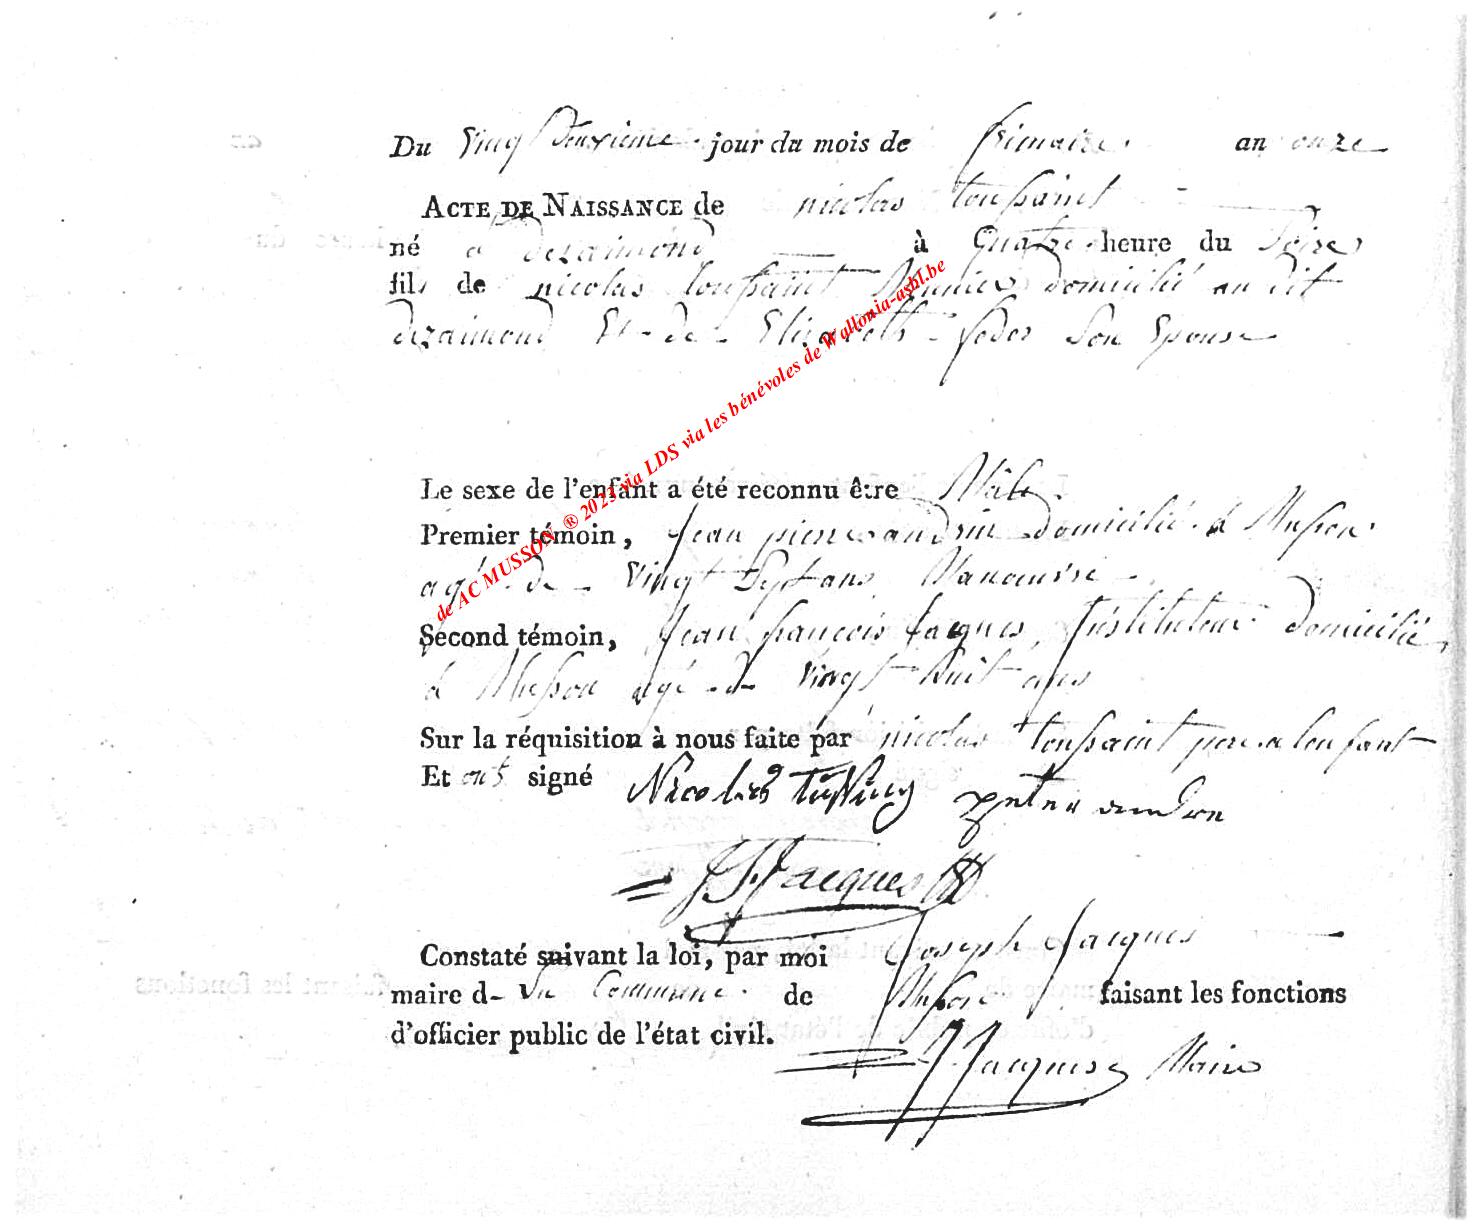 Du Vingt Deuxieme jour du mois de frimaire an onze
ACTE DE NAISSANCE de nicolas toussaint
né a dezaimond à quatre heure du Soire
fils de nicolas toussaint Meunier domicilié au dit
dezaimond Et de Elisabeth feder Son Epouse
Le sexe de l'enfant a été reconnu être Mâle
Premier témoin, Jean pierre andrin domicilié à Musson
agé de vingt Sept ans Manœuvre
Second témoin, Jean françois Jacques Instituteur domicilié
à Musson agé de vingt huit ans
Sur la réquisition à nous faite par nicolas toussaint pere a lenfant
Et ont signé Nicolas peter andre
JfJacques
Constaté suivant la loi, par moi Joseph Jacques
maire d- la Commune de Musson faisant les fonctions
d'officier public de l'état civil.
JJacques Maire
de AC MUSSON ® 2023 via LDS via les bénévoles de Wallonia-asbl.be